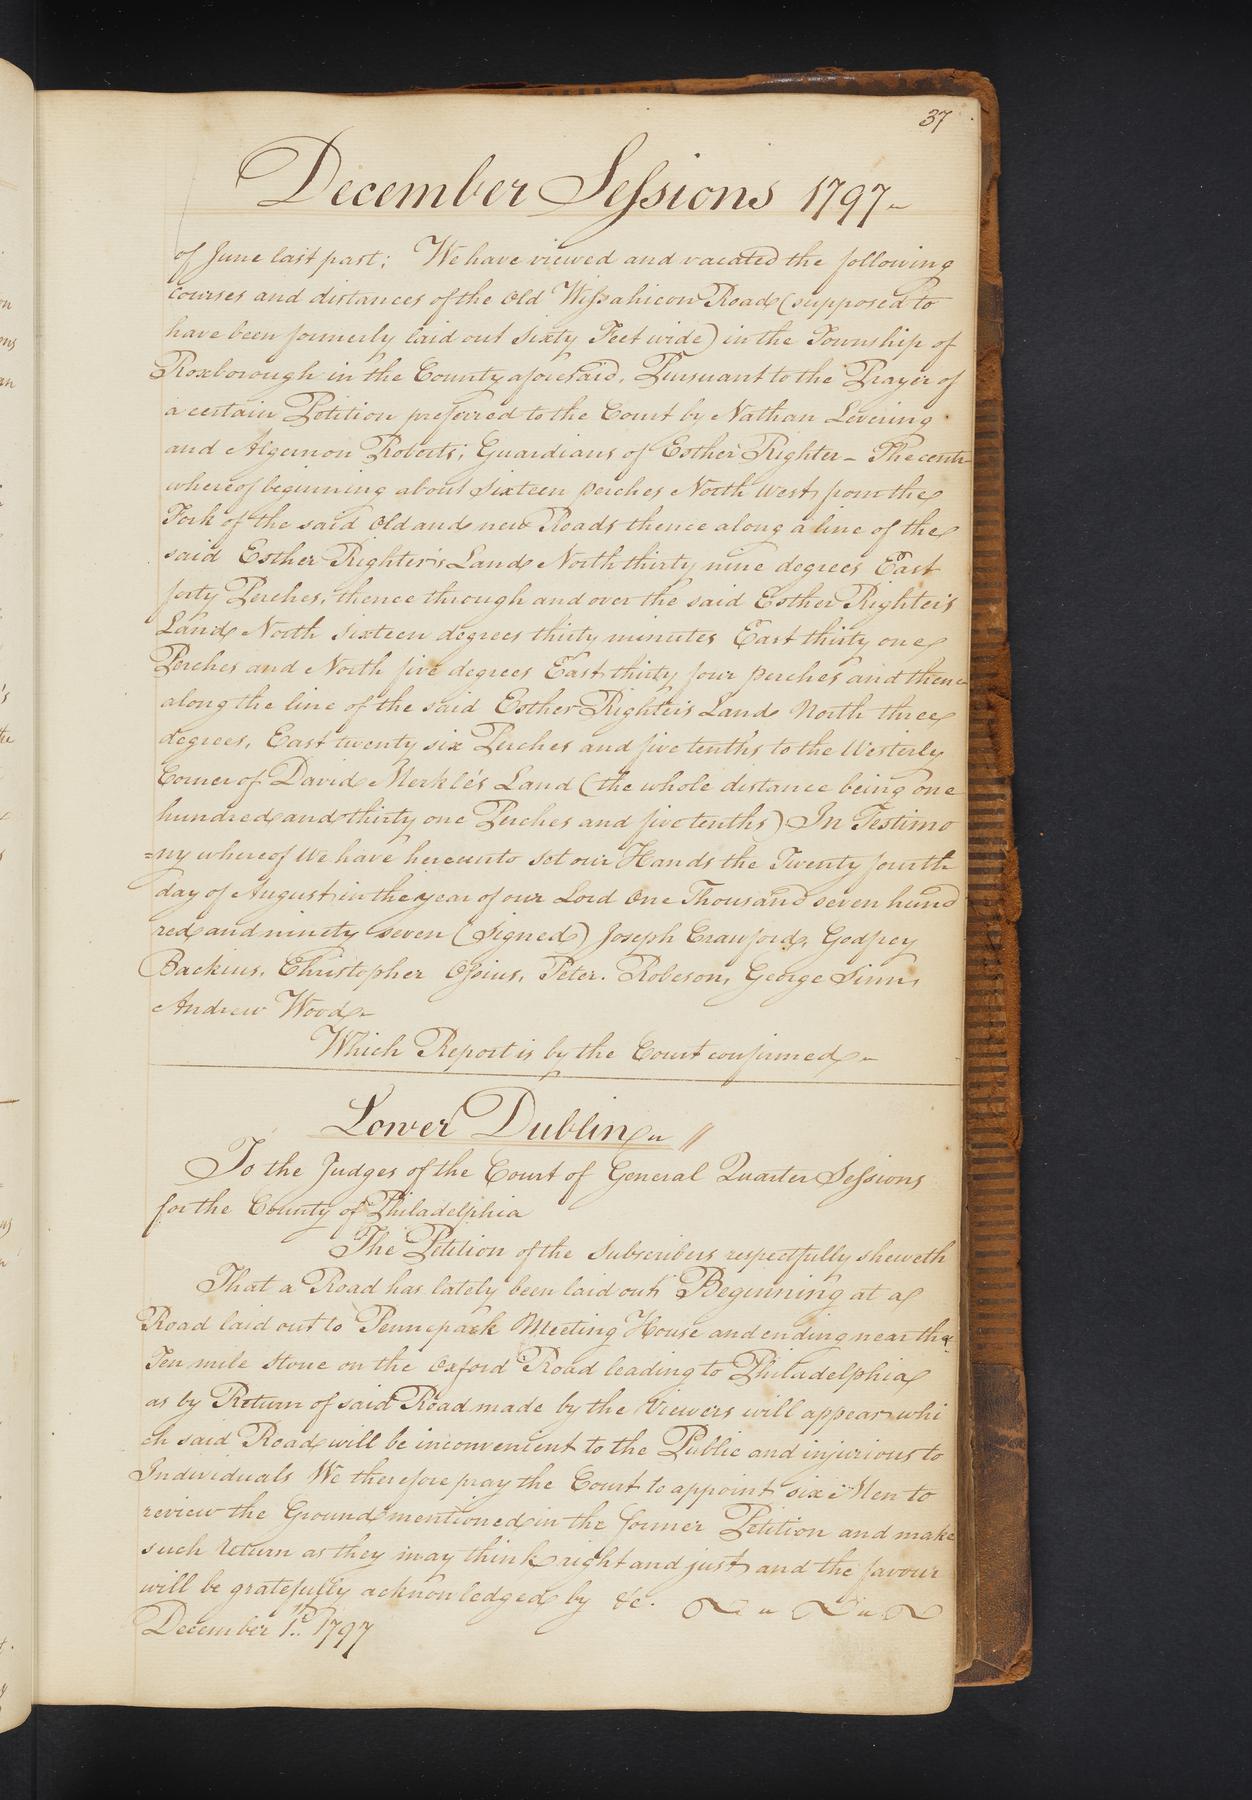 37
December Sessions 1797
of June last past; We have viewed and vacated the following
courses and distances of the Old Wissahicon Road (supposed to
have been formerly laid out sixty Feet wide) in the Township of
Roxborough in the County aforesaid, Pursuant to the Prayer of
a certain Petition preferred to the Court by Nathan Levering
and Algernon Roberts; Guardians of Esther Righter - The centre
whereof beginning about sixteen perches North West from the
Fork of the said Old and new Roads thence along a line of the
said Esther Righter's Land North thirty nine degrees East
forty Perches, thence through and over the said Esther Righter's
Land North sixteen degrees thirty minutes East thirty one
Perches and North five degrees East thirty four perches and thence
along the line of the said Esther Righter's Land North three
degrees, East twenty six Perches and five tenths to the Westerly
Corner of David Merkle's Land (the whole distance being one
hundred and thirty one Perches and five tenths) In Testimo
=ny whereof We have hereunto set our Hands the Twenty fourth
day of August in the year of our Lord One Thousand seven hund
red and ninety seven (Signed) Joseph Crawford, Godfrey
Backius, Christopher Ossius, Peter. Robeson, George Sinn,
Andrew Wood
Which Report is by the Court confirmed
Lower Dublin
To the Judges of the Court of General Quarter Sessions
for the County of Philadelphia
The Petition of the Subscribers respectfully sheweth
That a Road has lately been laid out Beginning at a
Road laid out to Pennepack Meeting House and ending near the
Ten mile Stone on the Oxford Road leading to Philadelphia
as by Return of said Road made by the Viewers will appear whi
ch said Road will be inconvenient to the Public and injurious to
Individuals We therefore pray the Court to appoint six Men to
review the Ground mentioned in the former Petition and make
such return as they may think right and just and the favour
will be gratefully acknowledged by &c.
December 1st 1797